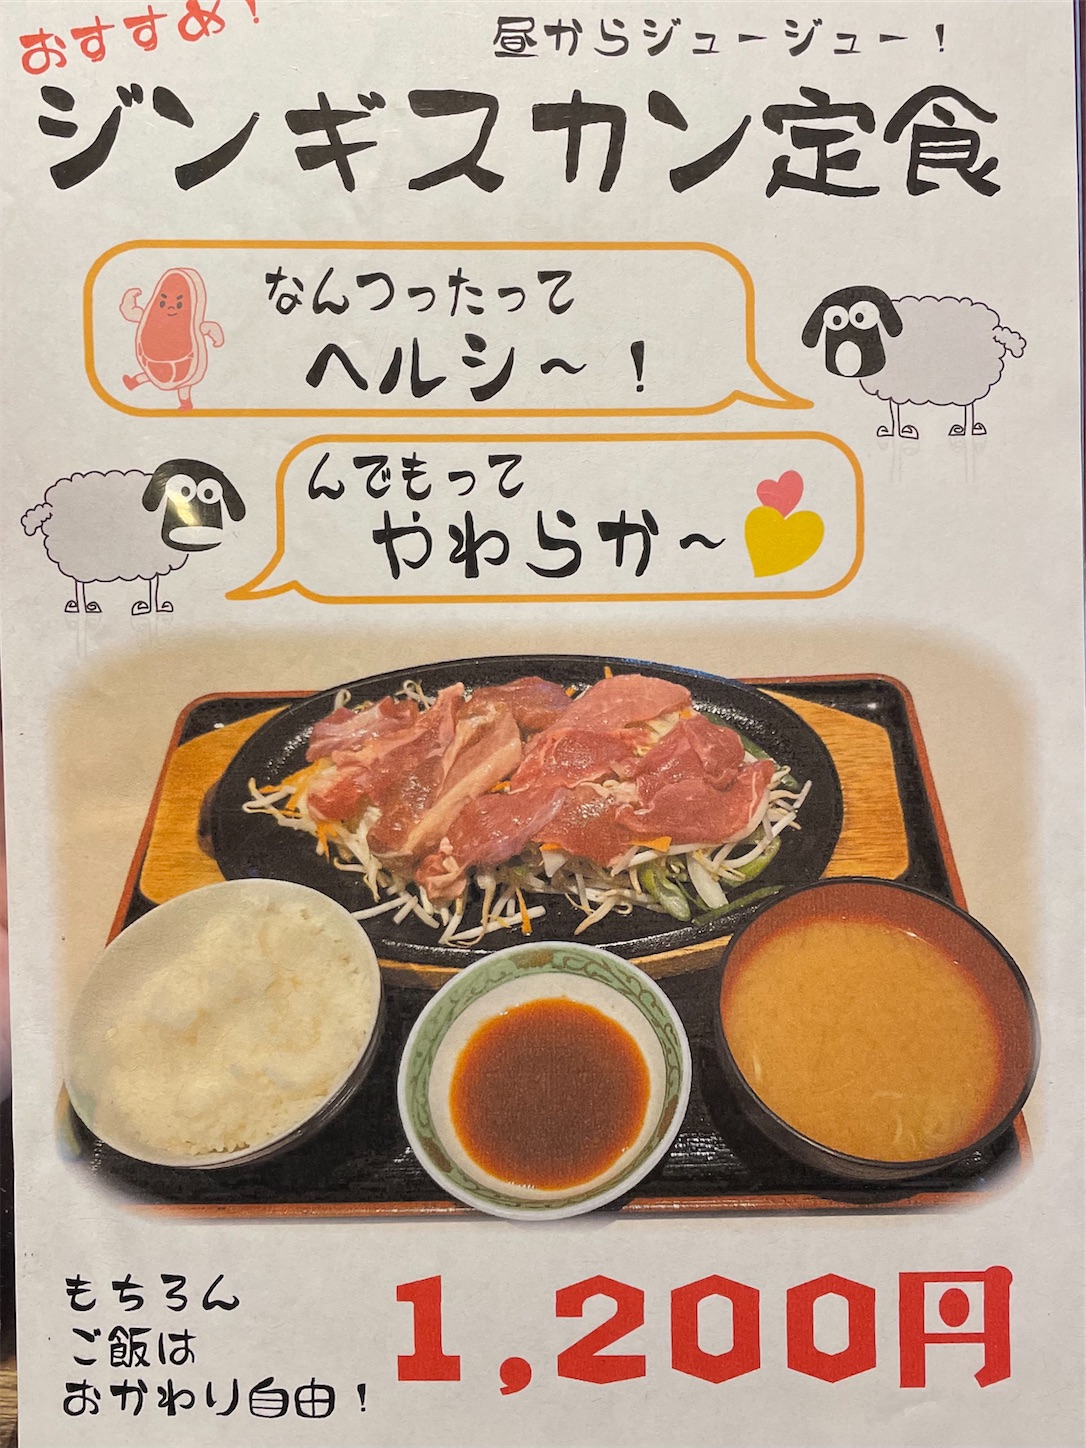 おすすめ!
昼からジュージュー!
ジンギスカン定食
なんつったって
ヘルシ〜!
んでもって
やわらか〜
もちろん
ご飯は
おかわり自由!
1,200円